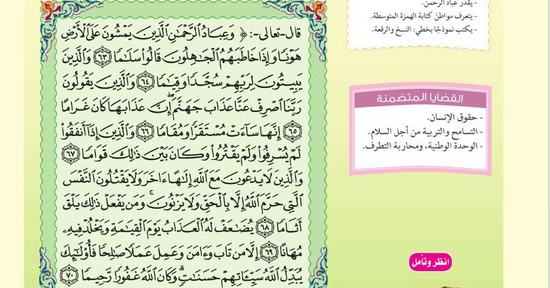 قال-تعالى-: ﴿ وَعِبَادُ الرَّحْمَٰنِ الَّذِينَ يَمْشُونَ عَلَى الْأَرْضِ
هَوْنًا وَإِذَا خَاطَبَهُمُ الْجَاهِلُونَ قَالُوا سَلَامًا ٦٣ وَالَّذِينَ
يَبِيتُونَ لِرَبِّهِمْ سُجَّدًا وَقِيَامًا ٦٤ وَالَّذِينَ يَقُولُونَ
رَبَّنَا اصْرِفْ عَنَّا عَذَابَ جَهَنَّمَ إِنَّ عَذَابَهَا كَانَ غَرَامًا
٦٥ إِنَّهَا سَاءَتْ مُسْتَقَرًّا وَمُقَامًا ٦٦ وَالَّذِينَ إِذَا أَنْفَقُوا
لَمْ يُسْرِفُوا وَلَمْ يَقْتُرُوا وَكَانَ بَيْنَ ذَٰلِكَ قَوَامًا ٦٧
وَالَّذِينَ لَا يَدْعُونَ مَعَ اللَّهِ إِلَٰهًا آخَرَ وَلَا يَقْتُلُونَ النَّفْسَ
الَّتِي حَرَّمَ اللَّهُ إِلَّا بِالْحَقِّ وَلَا يَزْنُونَ ۚ وَمَنْ يَفْعَلْ ذَٰلِكَ يَلْقَ
أَثَامًا ٦٨ يُضَاعَفْ لَهُ الْعَذَابُ يَوْمَ الْقِيَامَةِ وَيَخْلُدْ فِيهِ
مُهَانًا ٦٩ إِلَّا مَنْ تَابَ وَآمَنَ وَعَمِلَ عَمَلًا صَالِحًا فَأُولَٰئِكَ
يُبَدِّلُ اللَّهُ سَيِّئَاتِهِمْ حَسَنَاتٍ ۗ وَكَانَ اللَّهُ غَفُورًا رَحِيمًا ٧٠
- يقدر عباد الرحمن.
- يتعرف مواطن كتابة الهمزة المتوسطة.
- يكتب نموذجًا بخطي: النسخ والرقعة.
القضايا المتضمنة
- حقوق الإنسان.
- التسامح والتربية من أجل السلام.
- الوحدة الوطنية، ومحاربة التطرف.
انظر وتأمل